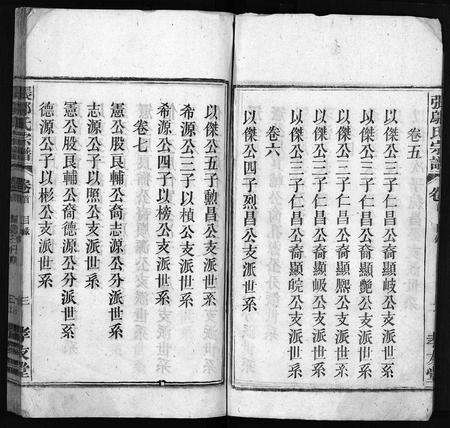 張鄔氏宗譜
卷五
以傑公三子仁昌公裔顯岐公支派世系
以傑公三子仁昌公裔顯艷公支派世系
以傑公三子仁昌公裔顯熙公支派世系
以傑公三子仁昌公裔顯岋公支派世系
以傑公三子仁昌公裔顯皖公支派世系
卷六
以傑公四子烈昌公支派世系
以傑公五子勳昌公支派世系
希源公三子以楨公支派世系
希源公四子以樑公支派世系
卷七
憲公股良輔公裔志源公分派世系
志源公子以照公支派世系
憲公股良輔公裔德源公分派世系
德源公子以彬公支派世系
卷首
目錄
三
孝友堂